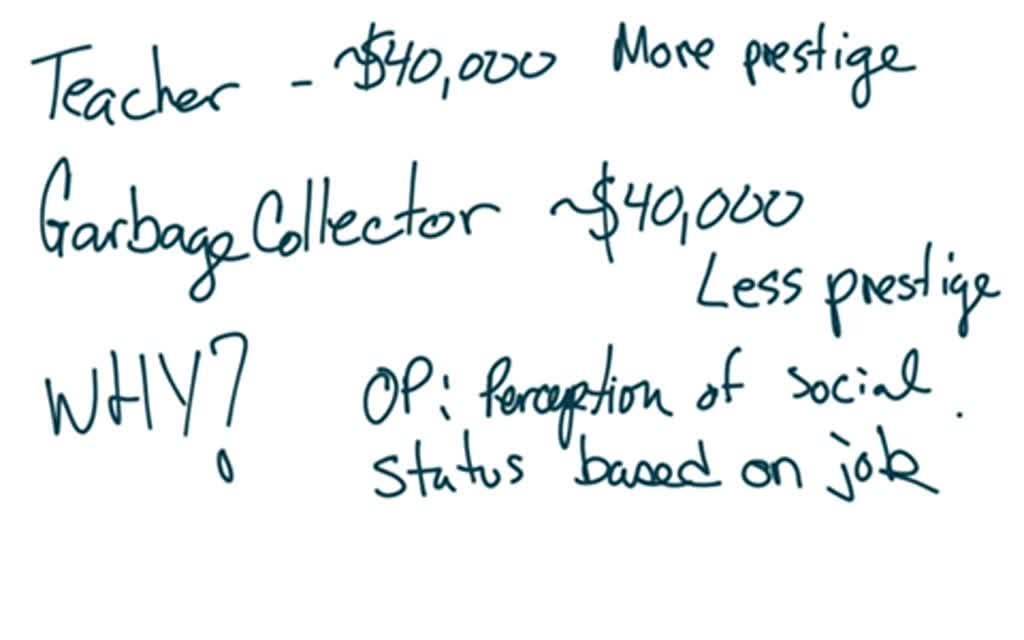 Teacher - ~$40,000 More prestige
Garbage Collector ~$40,000
Less prestige
WHY? OP: Perception of social
status based on job